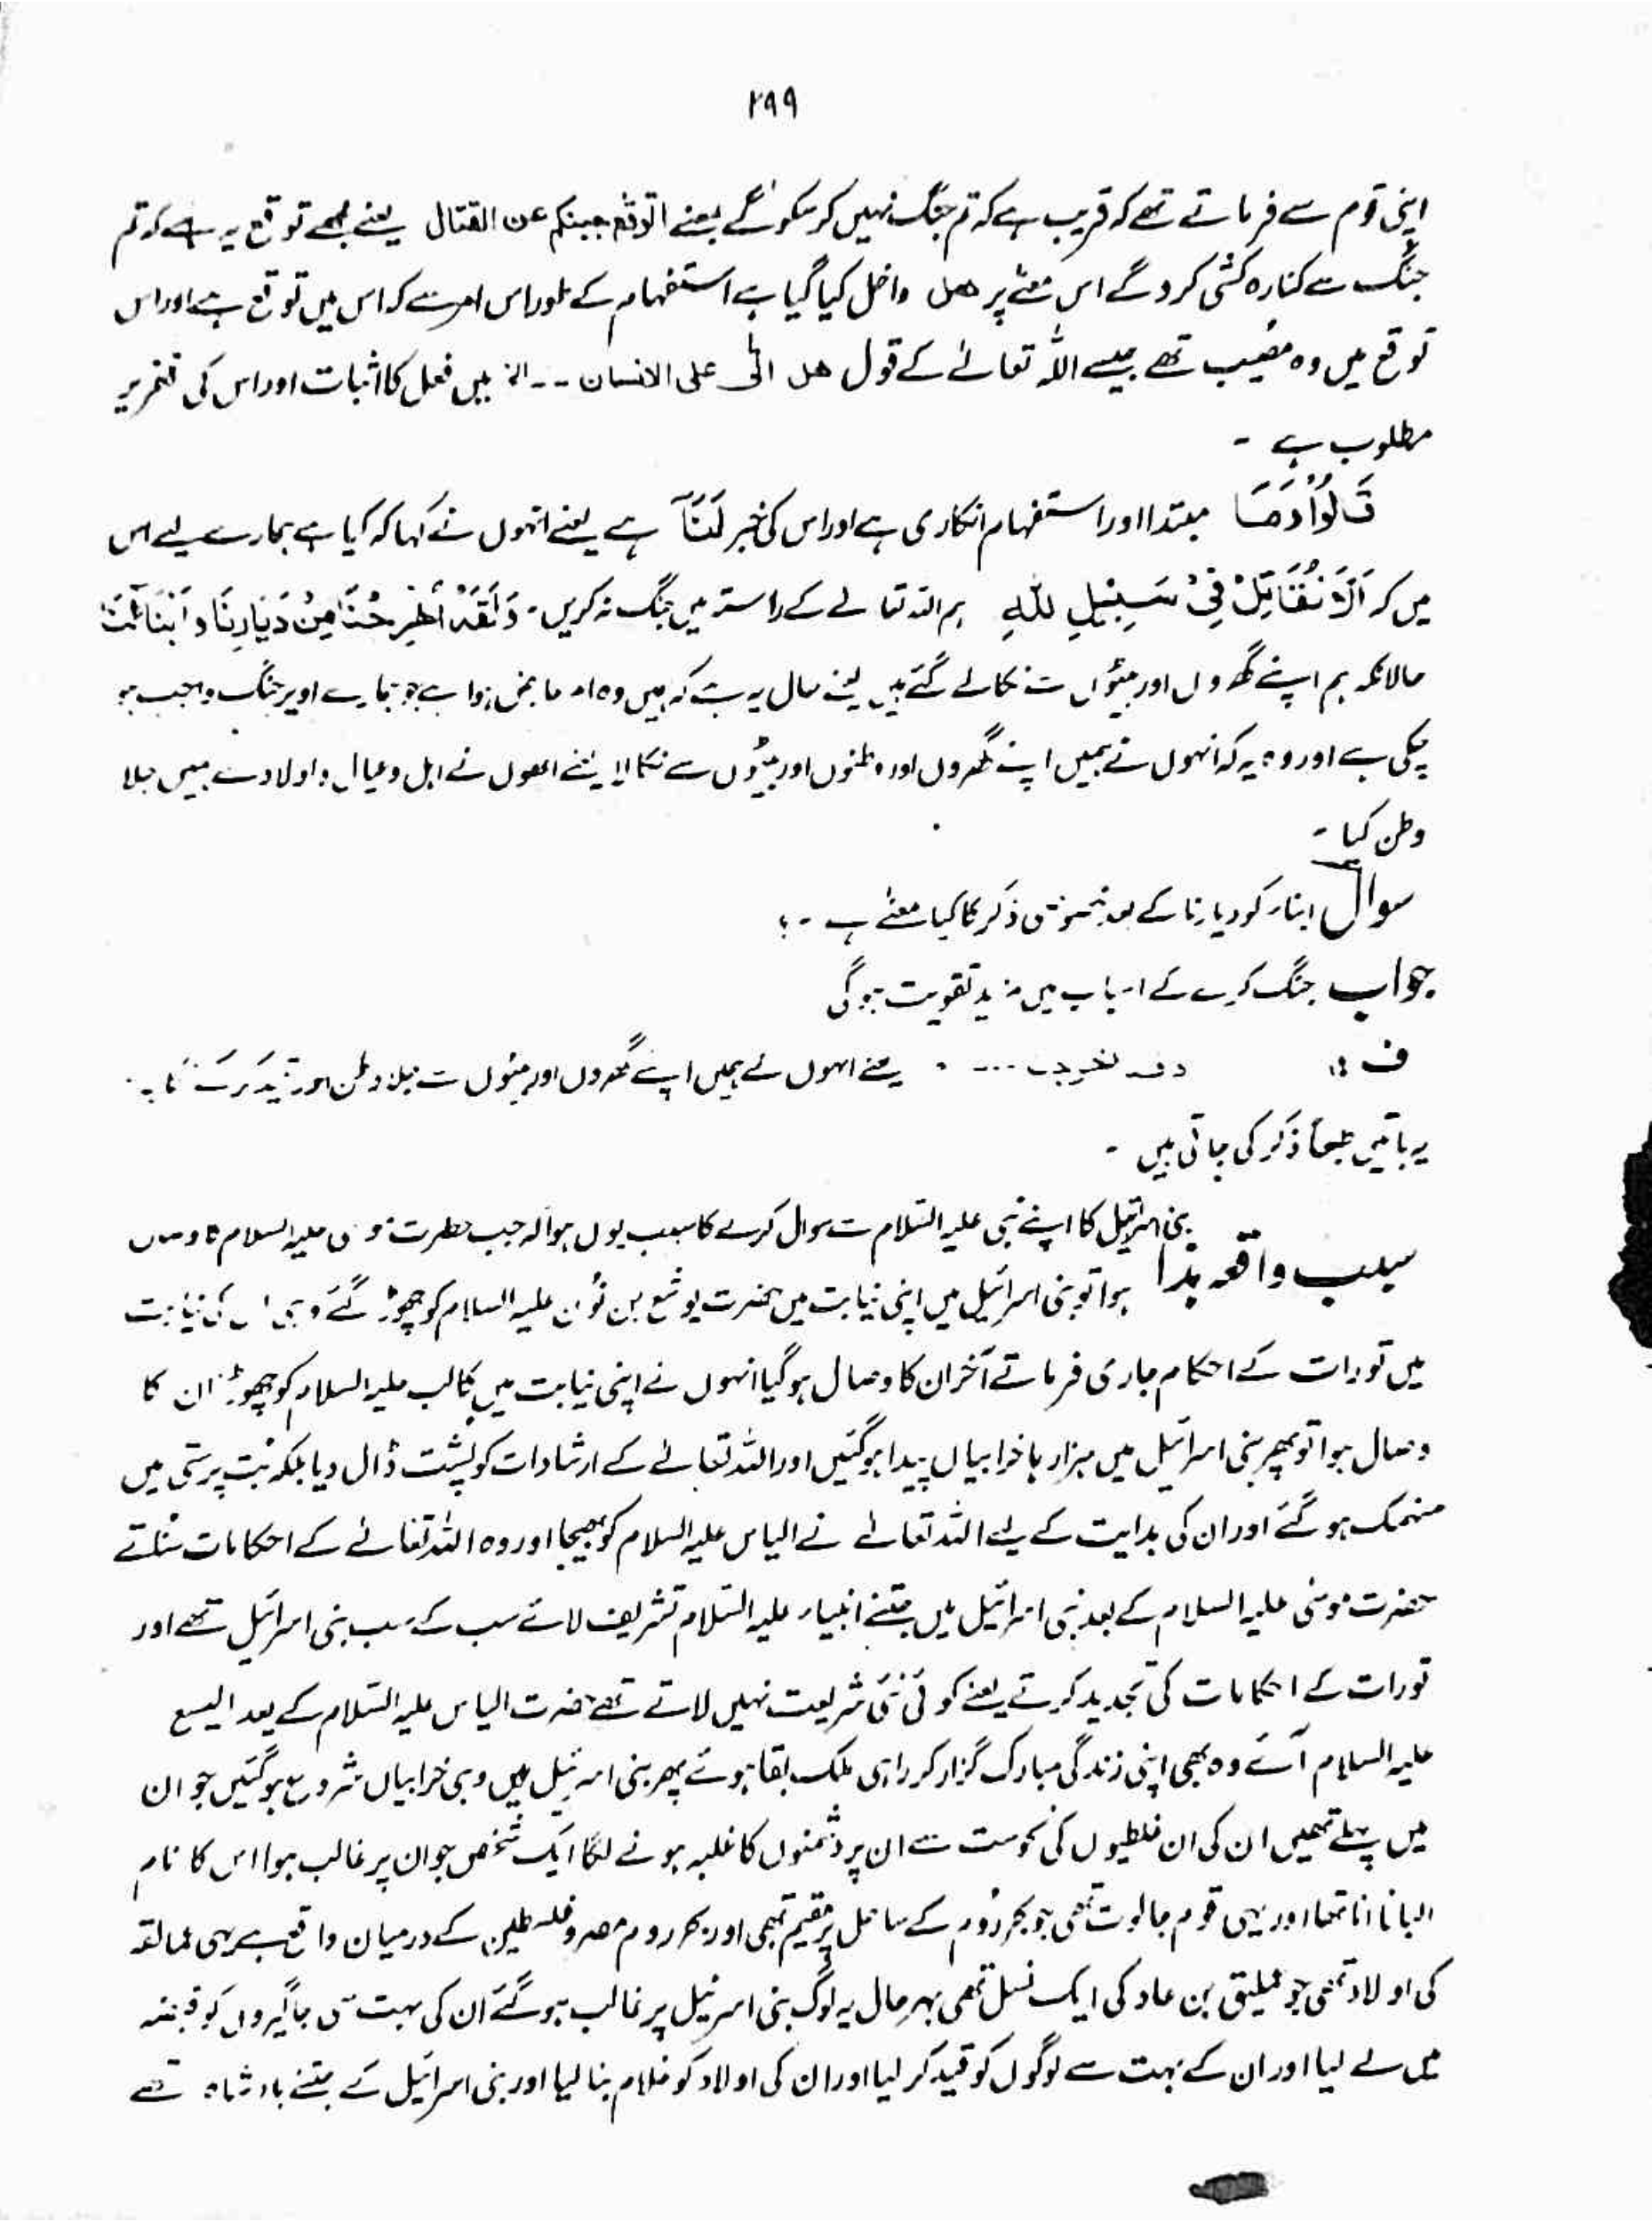 ۲۹۹
اپنی قوم سے فرماتے تھے کہ قریب ہے کہ تم جنگ نہیں کر سکو گے یعنے اتوقع جبنکم عن القتال یعنے مجھے توقع یہ ہے کہ تم
جنگ سے کنارہ کشی کرو گے اس معنے پر ھل داخل کیا گیا ہے استفہام کے طور اس امر سے کہ اس میں توقع ہے اور اس
توقع میں وہ مصیب تھے جیسے اللہ تعالےٰ کے قول ھل اتٰی علی الانسان ۔۔ الخ میں فعل کا اثبات اور اس کی تقریر
مطلوب ہے ۔
قَالُوْا وَمَا مبتدا اور استفہام انکاری ہے اور اس کی خبر لَنَآ ہے یعنے انہوں نے کہا کہ کیا ہے ہمارے لیے اس
میں کہ اَلَّا نُقَاتِلَ فِیْ سَبِیْلِ للّٰہِ ہم اللہ تعالےٰ کے راستہ میں جنگ نہ کریں ۔ وَلَقَدْ اُخْرِجْنَا مِنْ دِیَارِنَا وَ اَبْنَآئِنَا
حالانکہ ہم اپنے گھروں اور بیٹوں سے نکالے گئے ہیں یعنے حال یہ ہے کہ ہمیں وہ امر عارض ہوا ہے جو ہمارے اوپر جنگ واجب ہو
چکی ہے اور وہ یہ کہ انہوں نے ہمیں اپنے گھروں اور وطنوں اور بیٹوں سے نکالا یعنے انھوں نے اہل و عیال و اولاد سے ہمیں جلا
وطن کیا ۔
سوال ابناء کو دیارنا کے بعد بخصوص ذکر کا کیا معنےٰ ہے ۔؟
جواب جنگ کرنے کے اسباب میں مزید تقویت ہوگی
ف : ۔۔۔ یعنے انہوں نے ہمیں اپنے گھروں اور بیٹوں سے جلا وطن اور
یہ باتیں طبعاً ذکر کی جاتی ہیں ۔
سبب واقعہ ہذا بنی اسرائیل کا اپنے نبی علیہ السّلام سے سوال کرنے کا سبب یوں ہوا کہ جب حضرت موسیٰ علیہ السلام کا وصال
ہوا تو بنی اسرائیل میں اپنی نیابت میں حضرت یوشع بن نون علیہ السلام کو چھوڑ گئے وہی ان کی نیابت
میں تورات کے احکام جاری فرماتے آخر ان کا وصال ہو گیا انہوں نے اپنی نیابت میں کالب علیہ السلام کو چھوڑا ان کا
وصال ہوا تو پھر بنی اسرائیل میں ہزار ہا خرابیاں پیدا ہوگئیں اور اللہ تعالےٰ کے ارشادات کو پشت ڈال دیا بلکہ بُت پرستی میں
منہمک ہو گئے اور ان کی ہدایت کے لیے اللہ تعالےٰ نے الیاس علیہ السلام کو بھیجا اور وہ اللہ تعالےٰ کے احکامات سُناتے
حضرت موسٰی علیہ السلام کے بعد بنی اسرائیل میں جتنے انبیاء علیہ السّلام تشریف لائے سب کے سب بنی اسرائیل تھے اور
تورات کے احکامات کی تجدید کرتے یعنے کوئی نئی شریعت نہیں لاتے تھے حضرت الیاس علیہ السّلام کے بعد الیسع
علیہ السلام آئے وہ بھی اپنی زندگی مبارک گزار کر راہی ملک بقا ہوئے پھر بنی اسرئیل میں وہی خرابیاں شروع ہوگئیں جو ان
میں پہلے تھیں ان کی ان غلطیوں کی نحوست سے ان پر دشمنوں کا غلبہ ہونے لگا ایک شخص جو ان پر غالب ہوا اس کا نام
البانانا تھا اور یہی قوم جالوت تھی جو بحر رُوم کے ساحل پر مقیم تھی اور بحر روم مصر و فلسطین کے درمیان واقع ہے یہی عمالقہ
کی اولاد تھی جو عملیق بن عاد کی ایک نسل تھی بہرحال یہ لوگ بنی اسرئیل پر غالب ہو گئے ان کی بہت سی جاگیروں کو قبضہ
میں لے لیا اور ان کے بہت سے لوگوں کو قید کر لیا اور ان کی اولاد کو غلام بنا لیا اور بنی اسرائیل کے جتنے بادشاہ تھے